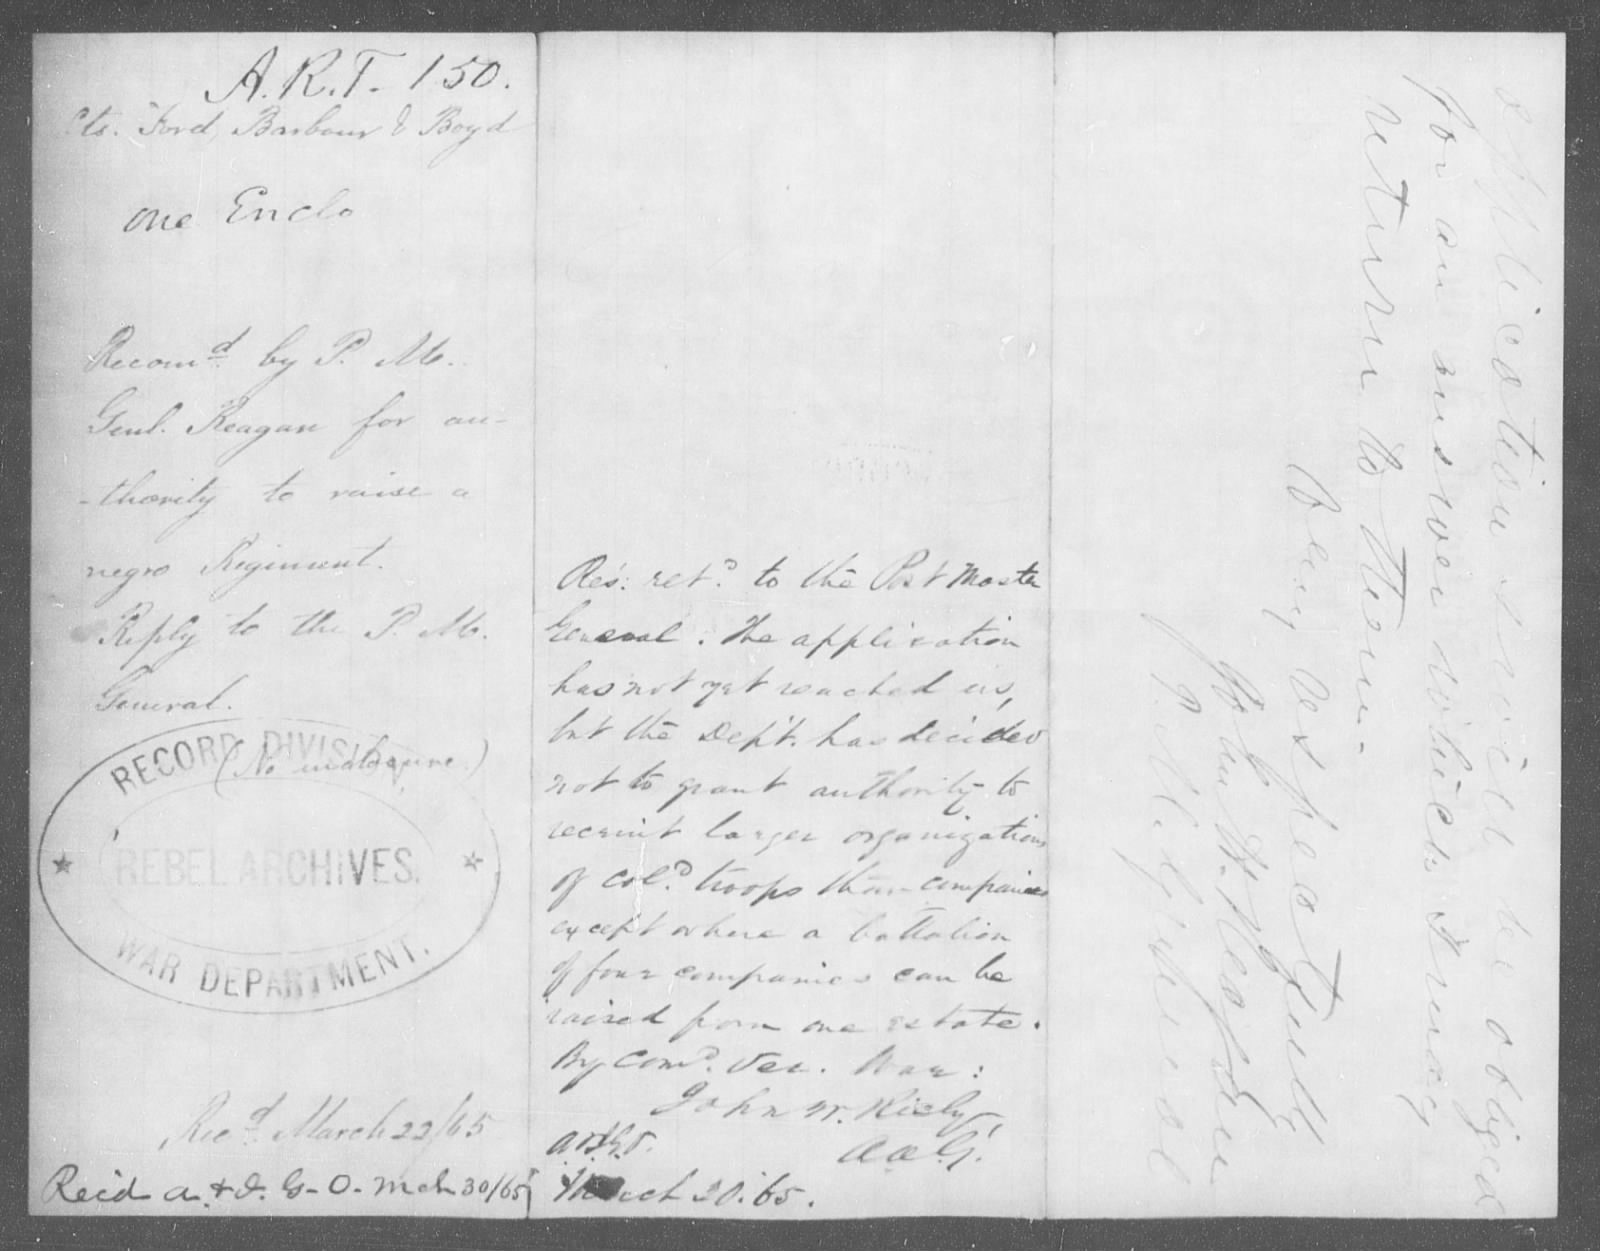 A.R.T. 150.
Pts. Ford, Barbour & Boyd
one Enclo
Recomd. by P. M.
Genl. Reagan for au-
-thority to raise a
negro Regiment.
Reply to the P. M.
General.
(No inclosure.)
RECORD DIVISION,
REBEL ARCHIVES.
WAR DEPARTMENT.
Recd. March 22/65
Rec'd A. & I. G. O. Mch 30/65
Res: retd. to the Post Master
General. The application
has not yet reached us,
but the Dept. has decided
not to grant authority to
recruit larger organizations
of Cold. troops than companies
except where a battalion
of four companies can be
raised from one estate.
By Comd. Sec. War:
John W. Riely,
A.A.G.
A.&I.G.O.
March 20. 65.
application I will be obliged
for an answer which I may
return to them.
Very Respectfully
John H. Reagan
P. M. General